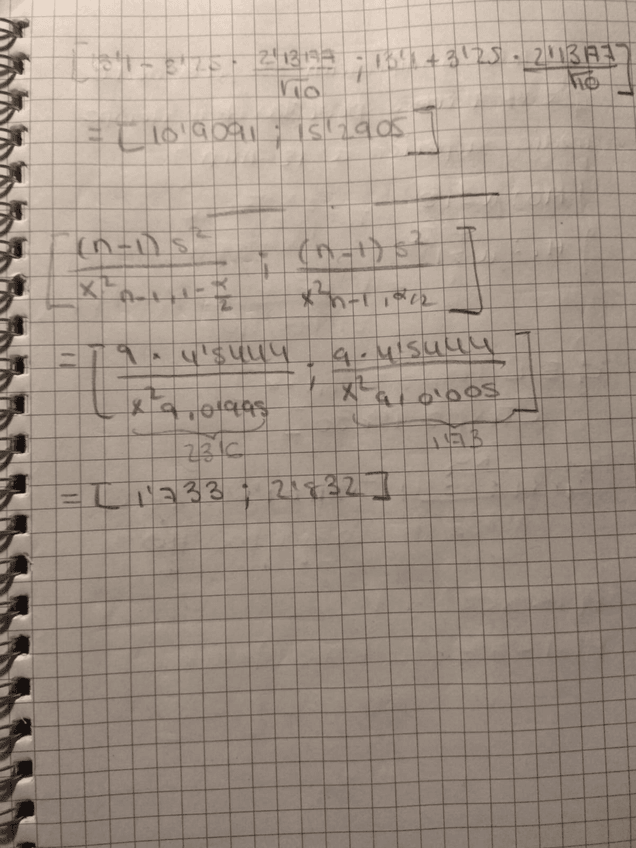 [13'1 - 3'25 · 2'1377/√10 ; 13'1 + 3'25 · 2'1377/√10]
= [10'9091 ; 15'2905]
[(n-1)s²/x²n-1,1-α/2 ; (n-1)s²/x²n-1,α/2]
= [9·4'5444/x²9,0'995 ; 9·4'5444/x²9,0'005]
23'6 1'73
= [1'733 ; 2'832]